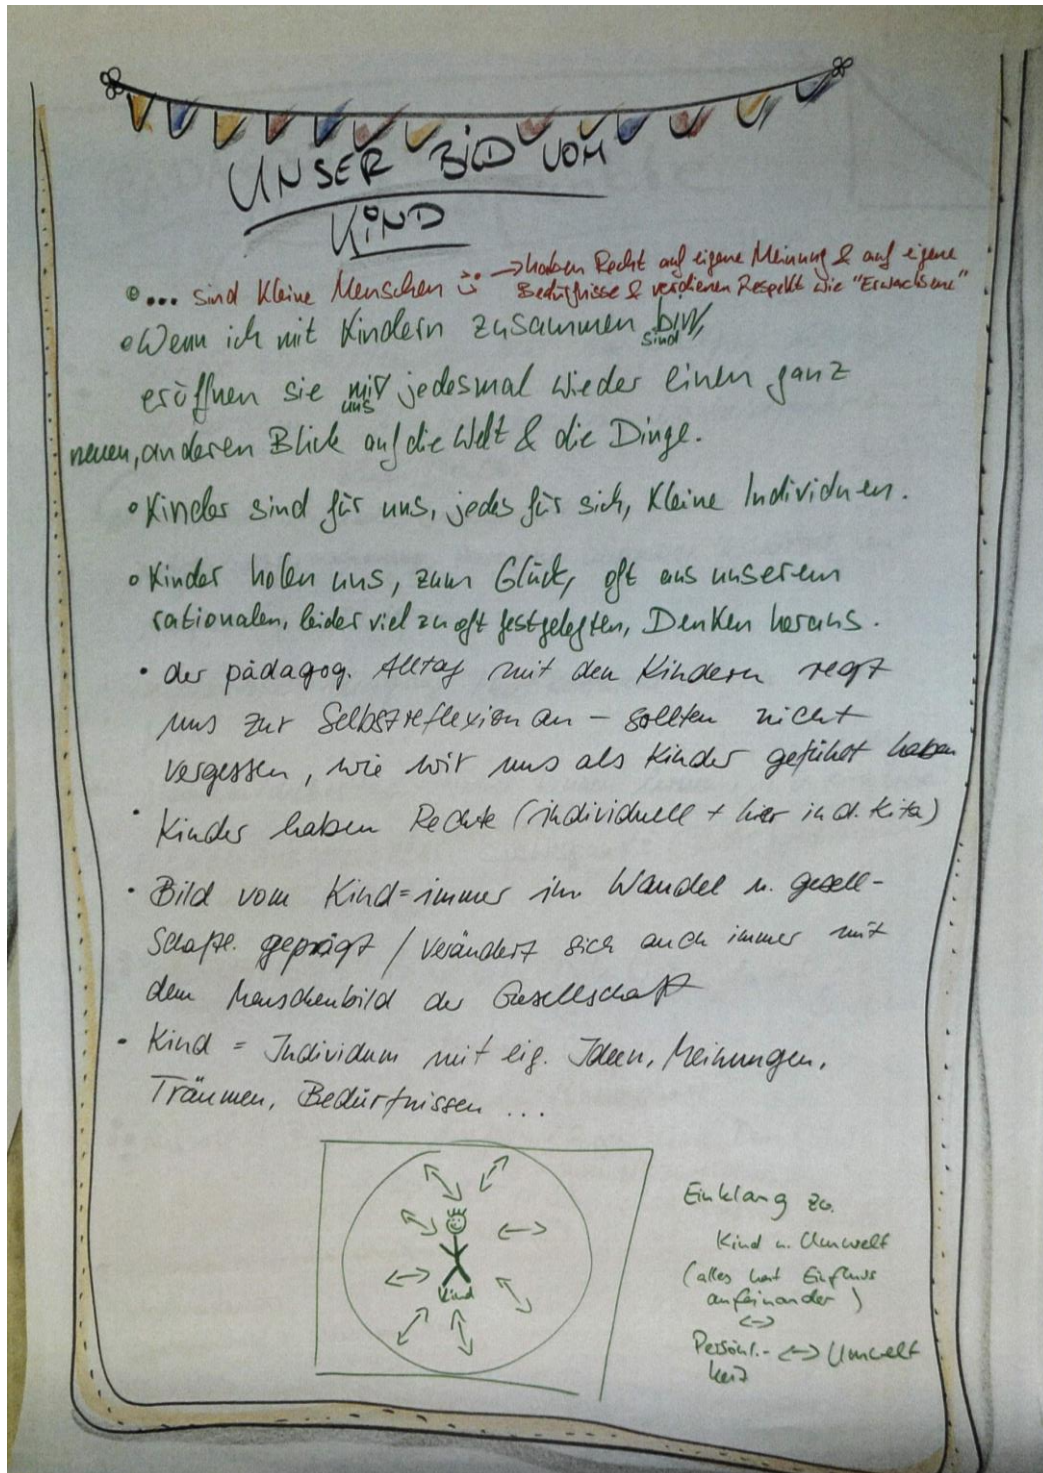 UNSER BILD VOM
KIND
... sind kleine Menschen → haben Recht auf eigene Meinung & auf eigene
Bedürfnisse & verdienen Respekt wie "Erwachsene"
Wenn ich mit Kindern zusammen bin,
sind
eröffnen sie mir jedesmal wieder einen ganz
uns
neuen, anderen Blick auf die Welt & die Dinge.
Kinder sind für uns, jedes für sich, kleine Individuen.
Kinder holen uns, zum Glück, oft aus unserem
rationalen, leider viel zu oft festgelegten, Denken heraus.
• der pädagog. Alltag mit den Kindern regt
uns zur Selbstreflexion an – sollten nicht
vergessen, wie wir uns als Kinder gefühlt haben
• Kinder haben Rechte (individuell + hier in d. Kita)
• Bild vom Kind = immer im Wandel u. gesell-
schaftl. geprägt / verändert sich auch immer mit
dem Menschenbild der Gesellschaft
• Kind = Individum mit eig. Ideen, Meinungen,
Träumen, Bedürfnissen ...
Kind
Einklang zw.
Kind u. Umwelt
(alles hat Einfluss
aufeinander)
↔
Persönl.- ↔ Umwelt
keit